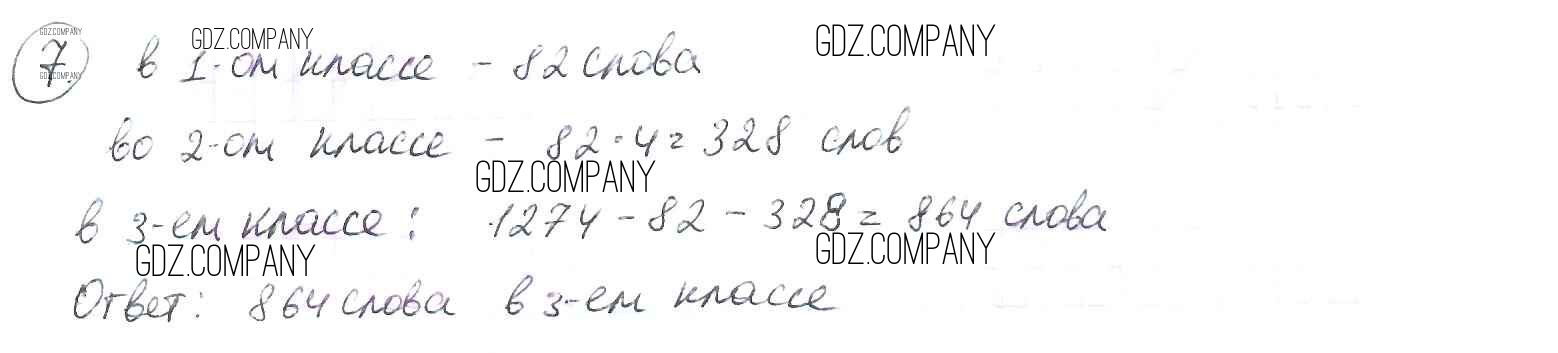 GDZ.COMPANY
7.
GDZ.COMPANY
GDZ.COMPANY
GDZ.COMPANY
в 1-ом классе - 82 слова
во 2-ом классе - 82 · 4 = 328 слов
GDZ.COMPANY
в 3-ем классе: 1274 - 82 - 328 = 864 слова
GDZ.COMPANY
GDZ.COMPANY
Ответ: 864 слова в 3-ем классе